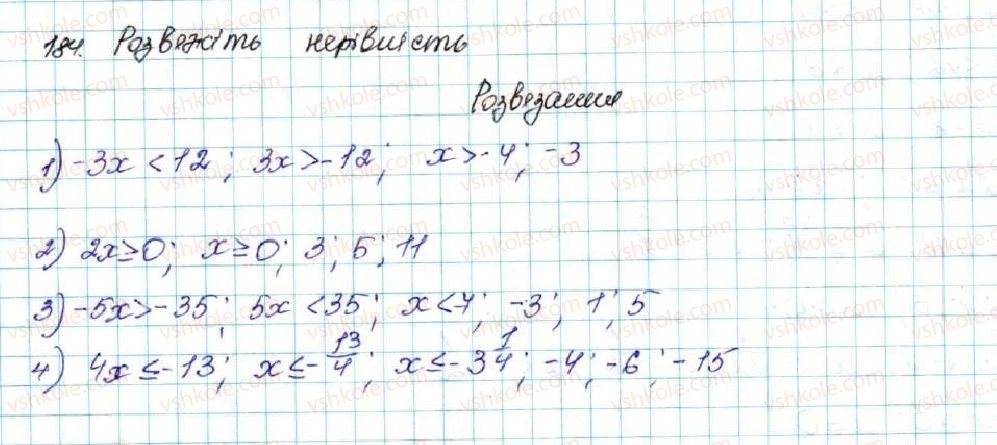 184. Розвяжіть нерівність
Розвязання
1) -3x < 12; 3x > -12; x > -4; -3
2) 2x ≥ 0; x ≥ 0; 3; 5; 11
3) -5x > -35; 5x < 35; x < 7; -3; 1; 5
4) 4x ≤ -13; x ≤ -13/4; x ≤ -3 1/4; -4; -6; -15